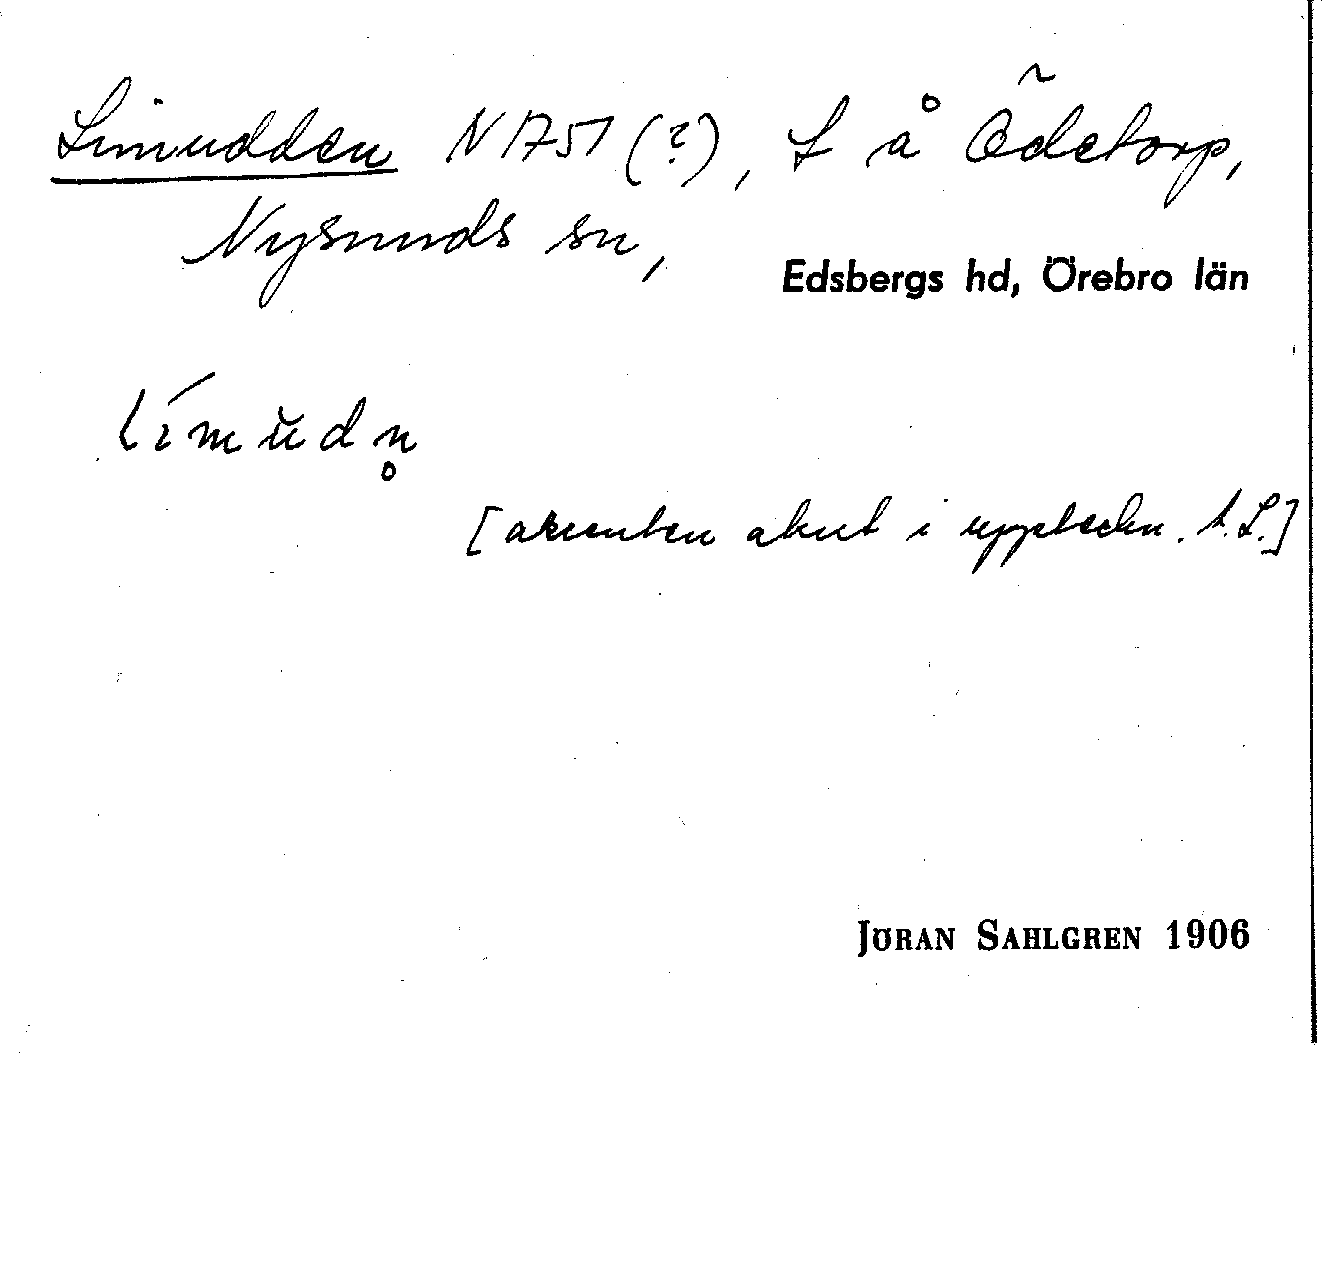 Limudden N 1751 (?), L å Ödetorp,
Nysunds sn,
Edsbergs hd, Örebro län
límŭdn̥
[accenten akut i uppteckn. t. L.]
JÖRAN SAHLGREN 1906